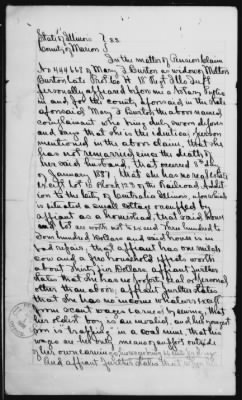 State of Illinois } SS
County of Marion
In the matter of Pension Claim
No 444668 of Mary J Burton as widow of Milton
Burton late Pvt Co H Ills Inft
personally appeared before me a Notary Public
in and for the County aforesaid in the State
aforesaid Mary J Burton the above named
complainant who being duly sworn deposes
and says that she is the identical person
mentioned in the above claim, that she
has not remarried since the death of
her said husband, that occured
of January 1887, that she has no real estate
except lot in Block 128 of the Railroad Addit
ion to the City of Centralia Illinois, upon which
is situated a small cottage occupied by
affiant as a homestead, that said house
and lot are worth not to exceed three hundred to
four hundred Dollars and said house is in
bad repair; that affiant has one milch
cow and a few household effects worth
about Thirty five Dollars affiant further
states that she has no property real or personal
other than above; affiant further states
that she has no income whatever except
from scant wages earned by sewing, that
her oldest boy is an invalid, and her youngest
son is "trapping" in a coal mine, that his
wages are her only means of support outside
of her own earnings
And affiant further states that